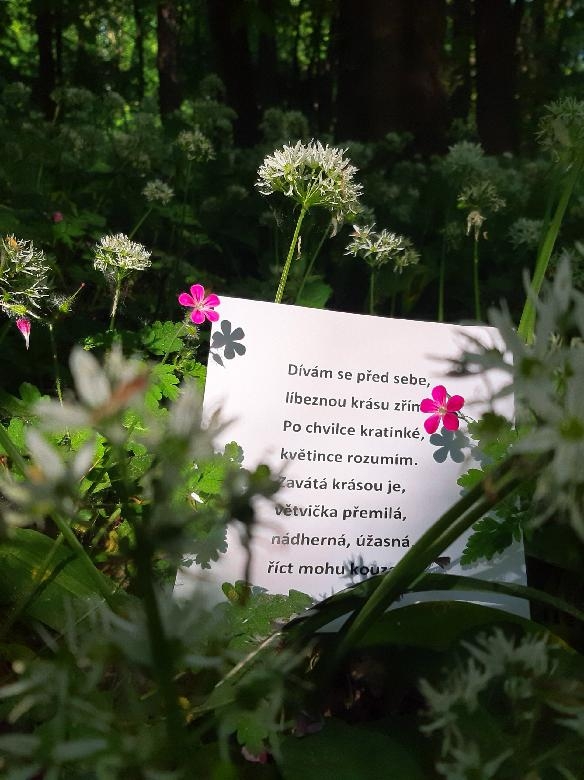 Dívám se před sebe,
líbeznou krásu zřím.
Po chvilce kratinké,
květince rozumím.
Zavátá krásou je,
větvička přemilá,
nádherná, úžasná
říct mohu